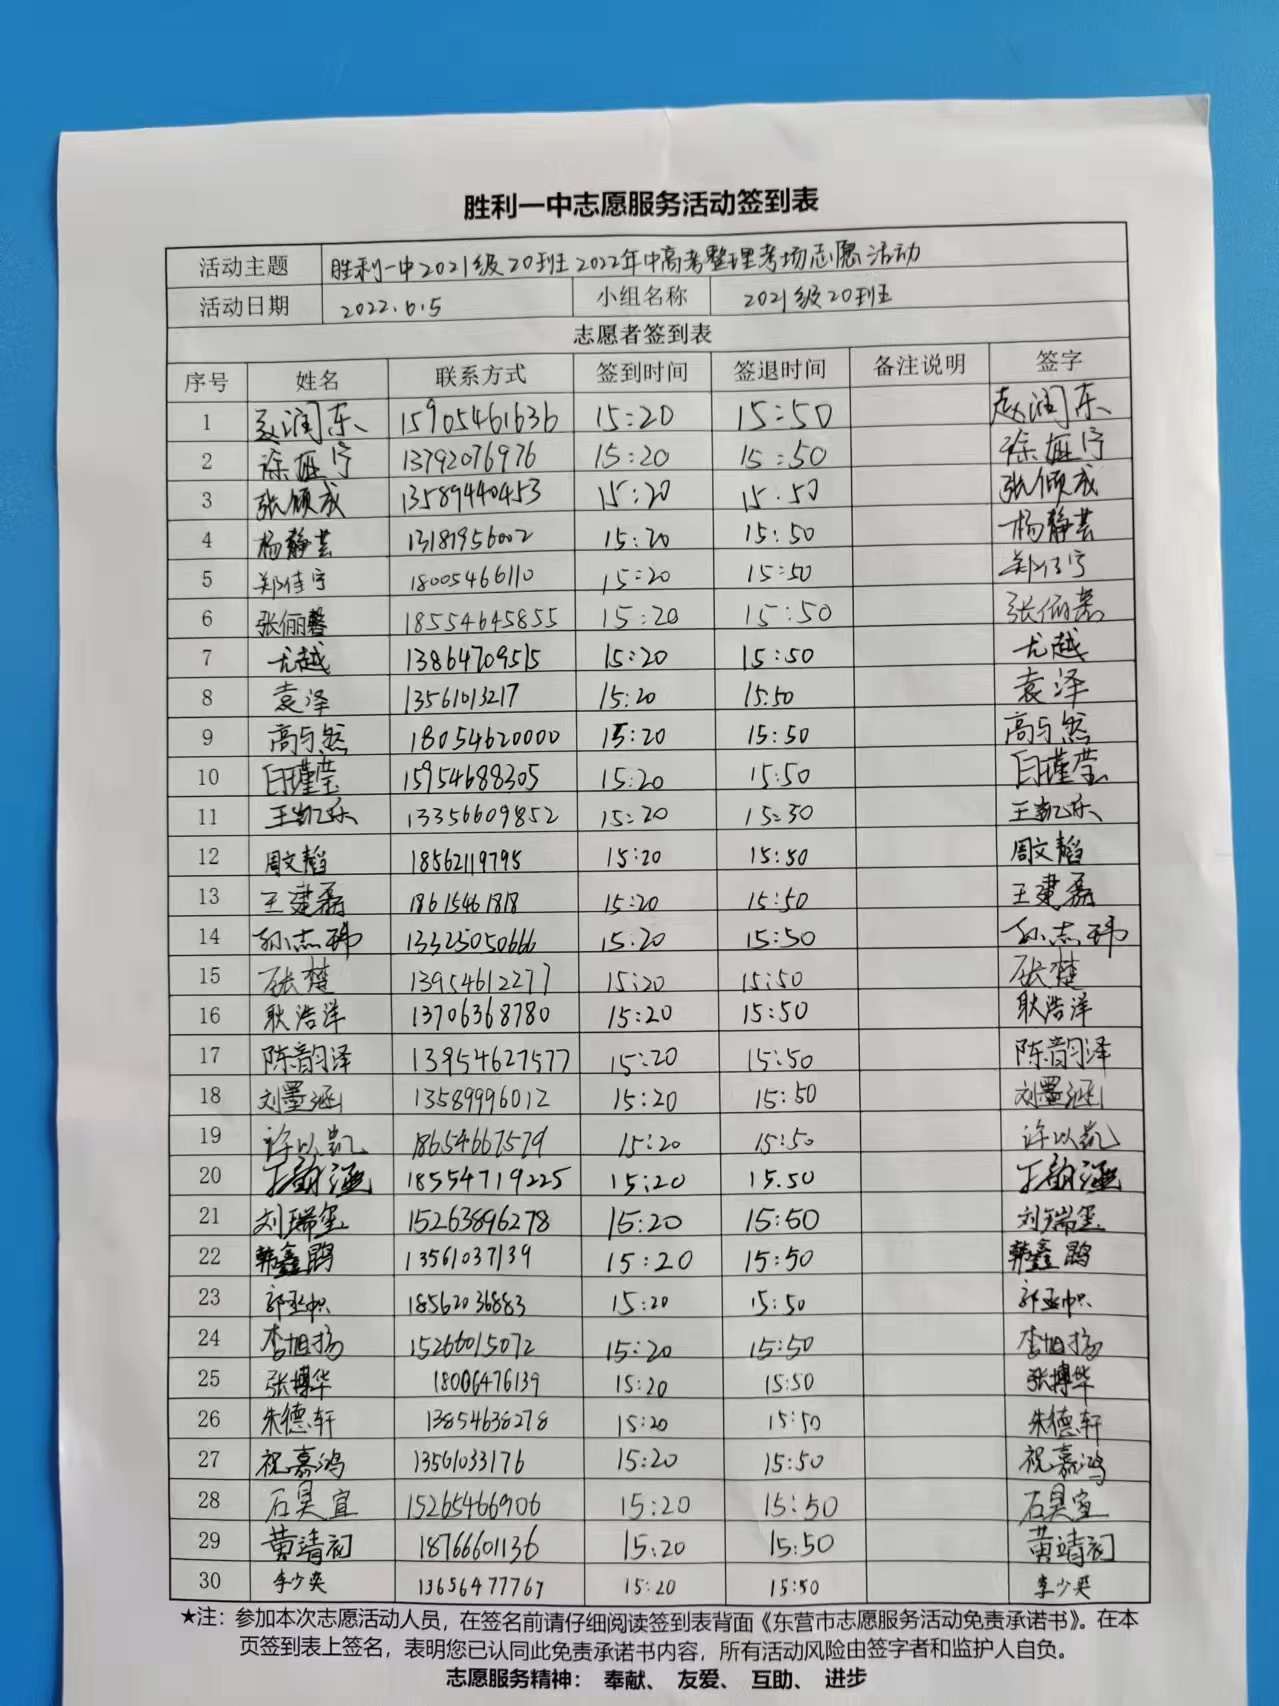 胜利一中志愿服务活动签到表
活动主题 胜利一中2021级20班2022年中高考整理考场志愿活动
活动日期 2022.6.5 小组名称 2021级20班
志愿者签到表
序号 姓名 联系方式 签到时间 签退时间 备注说明 签字
1 赵润东 15905461636 15:20 15:50 赵润东
2 徐娅宁 13792076976 15:20 15:50 徐娅宁
3 张倾成 13589440453 15:20 15.50 张倾成
4 杨静芸 13181956002 15:20 15:50 杨静芸
5 郑佳宇 18005466110 15:20 15:50 郑佳宇
6 张俪馨 18554645855 15:20 15:50 张俪馨
7 尤越 13864709515 15:20 15:50 尤越
8 袁泽 13561013217 15:20 15:50 袁泽
9 高与然 18054620000 15:20 15:50 高与然
10 白瑾莹 15954688305 15:20 15:50 白瑾莹
11 王凯乐 13356609852 15:20 15:30 王凯乐
12 周文韬 18562119795 15:20 15:50 周文韬
13 王建磊 18615461818 15:20 15:50 王建磊
14 孙志玮 13325050666 15:20 15:50 孙志玮
15 张楚 13954612277 15:20 15:50 张楚
16 耿浩洋 13706368780 15:20 15:50 耿浩洋
17 陈韵泽 13954627577 15:20 15:50 陈韵泽
18 刘墨涵 13589996012 15:20 15:50 刘墨涵
19 许以凯 18654667579 15:20 15:50 许以凯
20 丁韵涵 18554719225 15:20 15.50 丁韵涵
21 刘瑞玺 15263896278 15:20 15:50 刘瑞玺
22 韩鑫鹃 13561037139 15:20 15:50 韩鑫鹃
23 郭亚帜 18562036883 15:20 15:50 郭亚帜
24 李旭扬 15266015072 15:20 15:50 李旭扬
25 张博华 18006476139 15:20 15:50 张博华
26 朱德轩 13854638278 15:20 15:50 朱德轩
27 祝嘉鸿 13561033176 15:20 15:50 祝嘉鸿
28 石昊宜 15265466906 15:20 15:50 石昊宜
29 黄靖初 18766601136 15:20 15:50 黄靖初
30 李少奕 13656477767 15:20 15:50 李少奕
★注：参加本次志愿活动人员，在签名前请仔细阅读签到表背面《东营市志愿服务活动免责承诺书》。在本
页签到表上签名，表明您已认同此免责承诺书内容，所有活动风险由签字者和监护人自负。
志愿服务精神： 奉献、 友爱、 互助、 进步